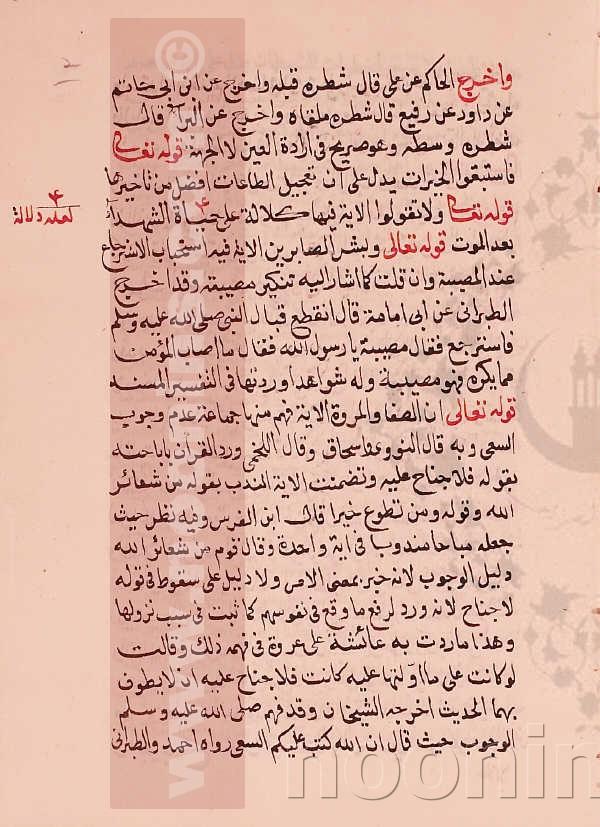 واخرج الحاكم عن علي قال شطره قبله واخرج عن ابن ابي حاتم
عن داود عن رفيع قال شطره تلقاه واخرج عن البرآء قال
شطره وسطه وهو صريح في ارادة العين لا الجهة قوله تعالى
فاستبقوا الخيرات يدل على ان تعجيل الطاعات افضل من تاخيرها
قوله تعالى ولا تقولوا الاية فيها كلالة على حياة الشهدآء
٤
لعله دلالة
بعد الموت قوله تعالى وبشر الصابرين الاية فيه استحباب الاسترجاع
عند المصيبة وان قلت كما اشار اليه تنكير مصيبة وقد اخرج
الطبراني عن ابي امامة قال انقطع قبال النبي صلى الله عليه وسلم
فاسترجع فقال مصيبة يا رسول الله فقال ما اصاب المؤمن
مما يكره فهو مصيبة وله شواهد اوردتها في التفسير المسند
قوله تعالى ان الصفا والمروة الاية فهم منها جماعة عدم وجوب
السعي وبه قال الثوري واسحاق وقال اللخمي ورد القرآن باباحته
بقوله فلا جناح عليه وتضمنت الاية الندب بقوله من شعائر
الله وقوله ومن تطوع خيرا قال ابن الفرس وفيه نظر حيث
جعله مباحا مندوبا في اية واحدة وقال قوم من شعائر الله
دليل الوجوب لانه خبر بمعنى الامر ولا دليل على سقوطه في قوله
لا جناح لانه ورد لرفع ما وقع في نفوسهم كما ثبت في سبب نزولها
وهذا ما ردت به عائشة على عروة في فهمه ذلك وقالت
لو كانت على ما اولتها عليه كانت فلا جناح عليه ان لا يطوف
بهما الحديث اخرجه الشيخان وقد فهم صلى الله عليه وسلم
الوجوب حيث قال ان الله كتب عليكم السعي رواه احمد والطبراني
noonin